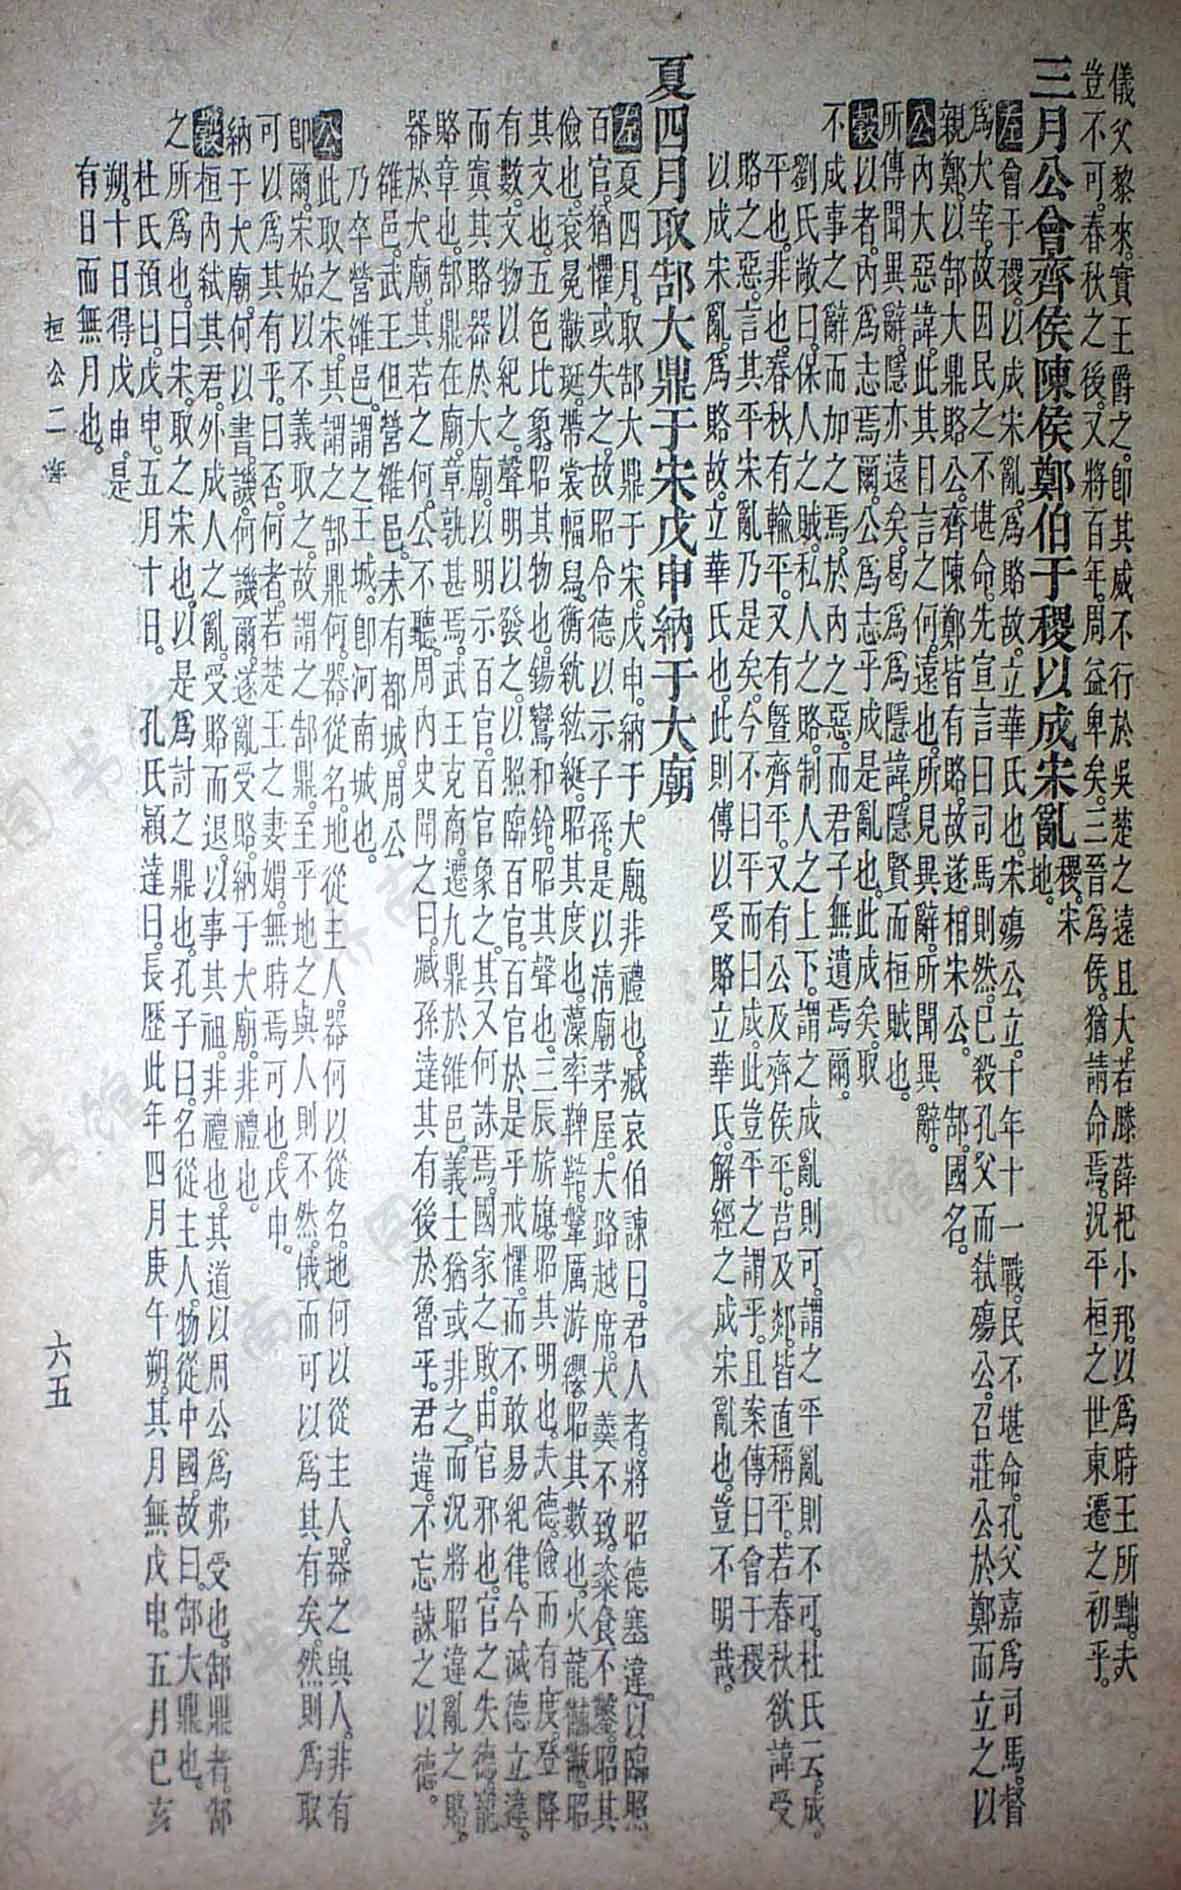 儀父黎來。實王爵之。卽其威不行於吳楚之遠且大。若滕薛杞小邦。以爲時王所黜。夫
豈不可。春秋之後。又將百年。周益卑矣。三晉爲侯。猶請命焉。況平桓之世東遷之初乎。
三月公會齊侯陳侯鄭伯于稷以成宋亂 稷。宋地。
左會于稷。以成宋亂。爲賂故。立華氏也。宋殤公立。十年十一戰。民不堪命。孔父嘉爲司馬。督
爲大宰。故因民之不堪命。先宣言曰。司馬則然。已殺孔父而弒殤公。召莊公於鄭而立之以
親鄭。以郜大鼎賂公。齊陳鄭皆有賂。故遂相宋公。 郜。國名。
公內大惡諱。此其目言之何。遠也。所見異辭。所聞異辭。
所傳聞異辭。隱亦遠矣。曷爲爲隱諱。隱賢而桓賊也。
穀以者。內爲志焉爾。公爲志乎成是亂也。此成矣。取
不成事之辭而加之焉。於內之惡。而君子無遺焉爾。
劉氏敞曰。保人之賊。私人之賂。制人之上下。謂之成亂則可。謂之平亂則不可。杜氏云。成。
平也。非也。春秋有輸平。又有曁齊平。又有公及齊侯平。莒及郯。皆直稱平。若春秋欲諱受
賂之惡。言其平宋亂乃是矣。今不曰平而曰成。此豈平之謂乎。且案傳曰會于稷
以成宋亂。爲賂故。立華氏也。此則傳以受賂立華氏。解經之成宋亂也。豈不明哉。
夏四月取郜大鼎于宋戊申納于大廟
左夏四月。取郜大鼎于宋。戊申。納于大廟。非禮也。臧哀伯諫曰。君人者。將昭德塞違。以臨照
百官。猶懼或失之。故昭令德以示子孫。是以淸廟茅屋。大路越席。大羹不致。粢食不鑿。昭其
儉也。袞冕黻珽。帶裳幅舄。衡紞紘綖。昭其度也。藻率鞞鞛。鞶厲游纓。昭其數也。火龍黼黻。昭
其文也。五色比象。昭其物也。鍚鸞和鈴。昭其聲也。三辰旂旗。昭其明也。夫德。儉而有度。登降
有數。文物以紀之。聲明以發之。以照臨百官。百官於是乎戒懼。而不敢易紀律。今滅德立違。
而寘其賂器於大廟。以明示百官。百官象之。其又何誅焉。國家之敗。由官邪也。官之失德。寵
賂章也。郜鼎在廟。章孰甚焉。武王克商。遷九鼎於雒邑。義士猶或非之。而況將昭違亂之賂。
器於大廟。其若之何。公不聽。周內史聞之曰。臧孫達其有後於魯乎。君違。不忘諫之以德。
雒邑。武王但營雒邑。未有都城。周公
乃卒營雒邑。謂之王城。卽河南城也。
公此取之宋。其謂之郜鼎何。器從名。地從主人。器何以從名。地何以從主人。器之與人。非有
卽爾。宋始以不義取之。故謂之郜鼎。至乎地之與人則不然。俄而可以爲其有矣。然則爲取
可以爲其有乎。曰否。何者。若楚王之妻媦。無時焉可也。戊申。
納于大廟。何以書。譏。何譏爾。遂亂受賂。納于大廟。非禮也。
穀桓內弒其君。外成人之亂。受賂而退。以事其祖。非禮也。其道以周公爲弗受也。郜鼎者。郜
之所爲也。曰宋。取之宋也。以是爲討之鼎也。孔子曰。名從主人。物從中國。故曰。郜大鼎也。
杜氏預曰。戊申。五月十日。 孔氏穎達曰。長歷此年四月庚午朔。其月無戊申。五月己亥
朔。十日得戊申。是
有日而無月也。
桓公二年
六五